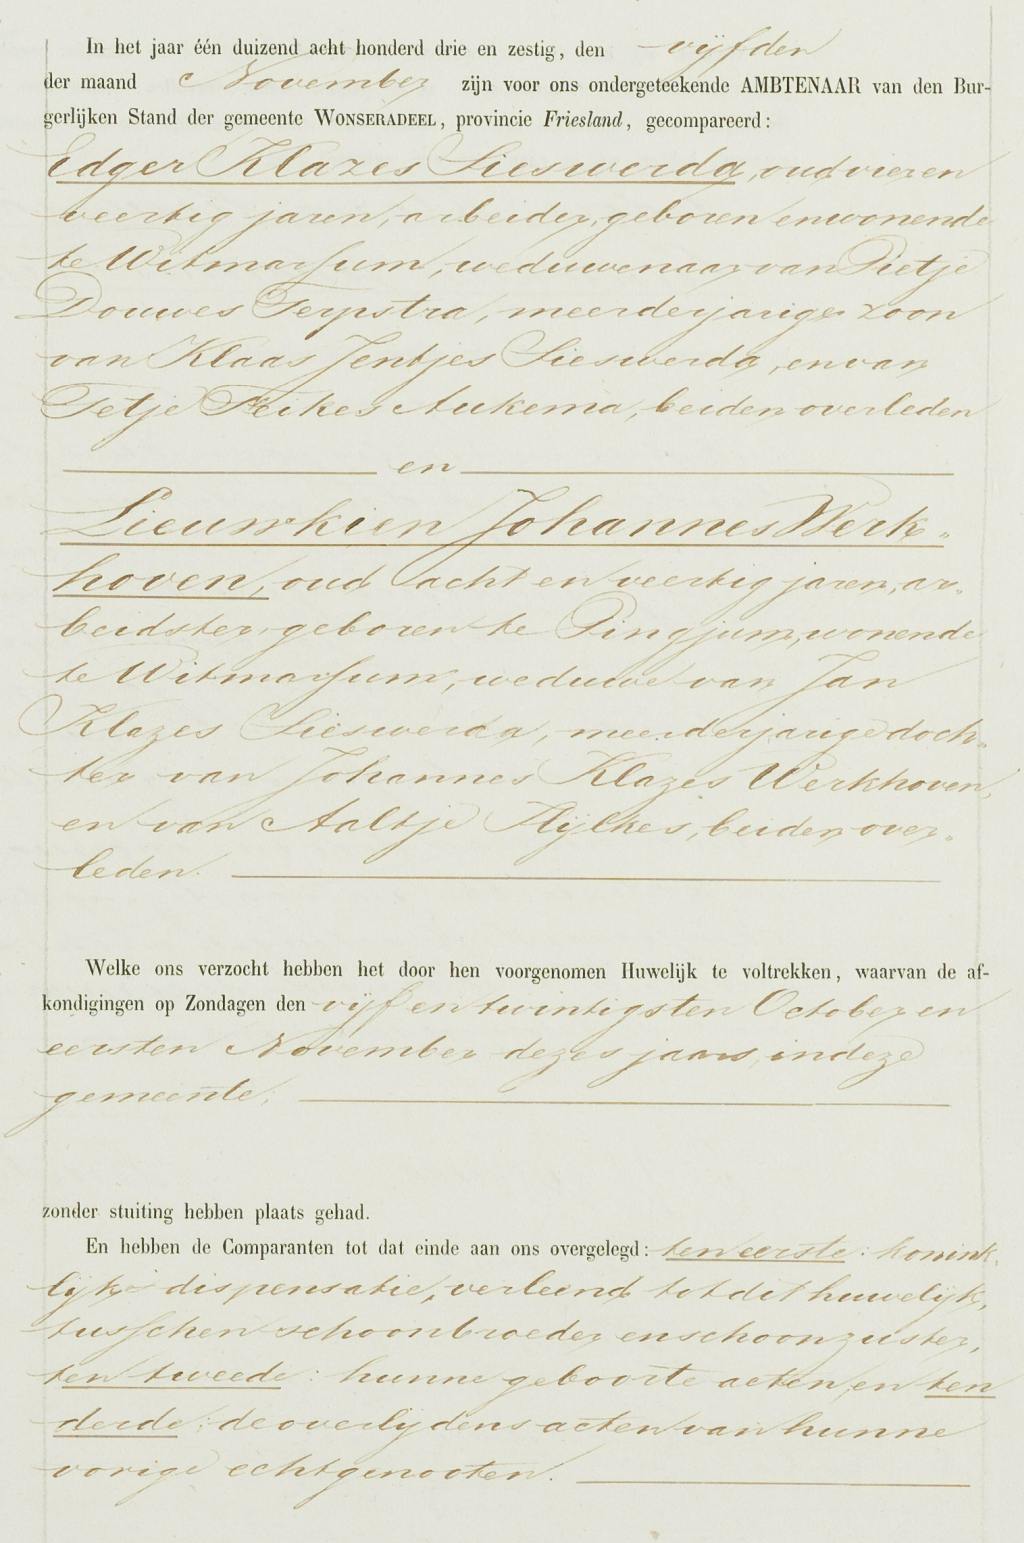 In het jaar één duizend acht honderd drie en zestig, den vijfden
der maand November zijn voor ons ondergeteekende AMBTENAAR van den Bur-
gerlijken Stand der gemeente WONSERADEEL, provincie Friesland, gecompareerd:
Edger Klazes Sieswerda, oud vier en
veertig jaren, arbeider, geboren en wonende
te Witmarsum, weduwenaar van Pietje
Douwes Terpstra, meerderjarige zoon
van Klaas Jentjes Sieswerda, en van
Tetje Feikes Aukema, beiden overleden
en
Lieuwkien Johannes Werk-
hoven, oud acht en veertig jaren, ar-
beidster, geboren te Pingjum, wonende
te Witmarsum, weduwe van Jan
Klazes Sieswerda, meerderjarige doch-
ter van Johannes Klazes Werkhoven,
en van Aaltje Hylkes, beiden over-
leden.
Welke ons verzocht hebben het door hen voorgenomen Huwelijk te voltrekken, waarvan de af-
kondigingen op Zondagen den vijf en twintigsten October en
eersten November dezes jaars, in deze
gemeente,
zonder stuiting hebben plaats gehad.
En hebben de Comparanten tot dat einde aan ons overgelegd: ten eerste: konink-
lijke dispensatie, verleend tot dit huwelijk,
tusschen schoonbroeder en schoonzuster,
ten tweede: hunne geboorte acten, en ten
derde: de overlijdens acten van hunne
vorige echtgenooten.